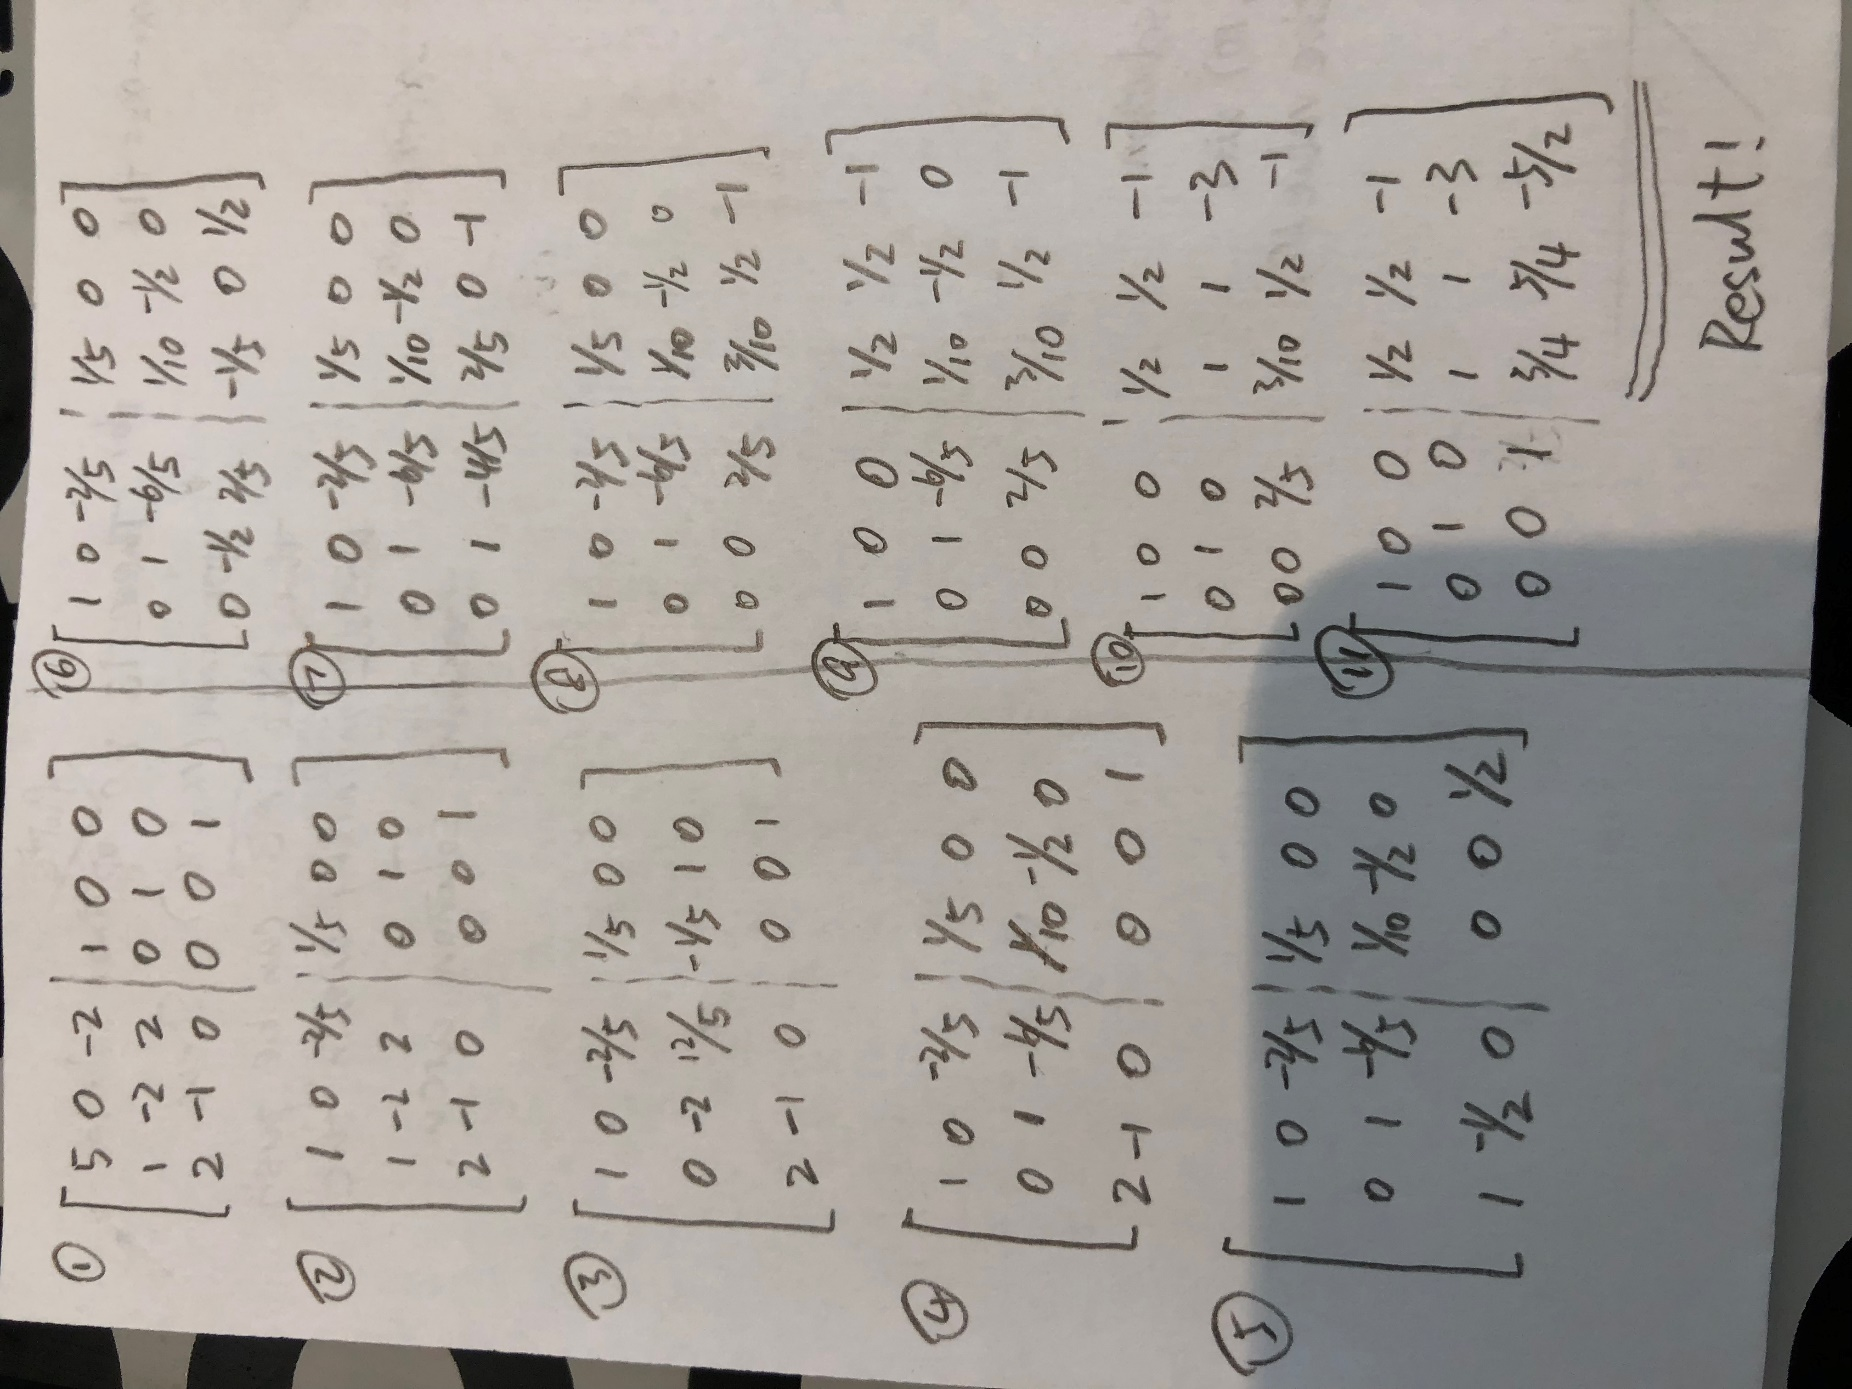 ①
[ 5 0 -2 | 1 0 0 ]
[ 1 -2 2 | 0 1 0 ]
[ 2 -1 0 | 0 0 1 ]
②
[ 1 0 -2/5 | 1/5 0 0 ]
[ 1 -2 2 | 0 1 0 ]
[ 2 -1 0 | 0 0 1 ]
③
[ 1 0 -2/5 | 1/5 0 0 ]
[ 0 -2 12/5 | -1/5 1 0 ]
[ 2 -1 0 | 0 0 1 ]
④
[ 1 0 -2/5 | 1/5 0 0 ]
[ 0 1 -6/5 | 1/10 -1/2 0 ]
[ 2 -1 0 | 0 0 1 ]
⑤
[ 1 0 -2/5 | 1/5 0 0 ]
[ 0 1 -6/5 | 1/10 -1/2 0 ]
[ 1 -1/2 0 | 0 0 1/2 ]
⑥
[ 1 0 -2/5 | 1/5 0 0 ]
[ 0 1 -6/5 | 1/10 -1/2 0 ]
[ 0 -1/2 2/5 | -1/5 0 1/2 ]
⑦
[ 1 0 -2/5 | 1/5 0 0 ]
[ 0 1 -6/5 | 1/10 -1/2 0 ]
[ 0 1 -4/5 | 2/5 0 -1 ]
⑧
[ 1 0 -2/5 | 1/5 0 0 ]
[ 0 1 -6/5 | 1/10 -1/2 0 ]
[ 0 0 2/5 | 3/10 1/2 -1 ]
⑨
[ 1 0 0 | 1/2 1/2 -1 ]
[ 0 1 -6/5 | 1/10 -1/2 0 ]
[ 0 0 2/5 | 3/10 1/2 -1 ]
⑩
[ 1 0 0 | 1/2 1/2 -1 ]
[ 0 1 0 | 1 1 -3 ]
[ 0 0 2/5 | 3/10 1/2 -1 ]
⑪
[ 1 0 0 | 1/2 1/2 -1 ]
[ 0 1 0 | 1 1 -3 ]
[ 0 0 1 | 3/4 5/4 -5/2 ]
Result!